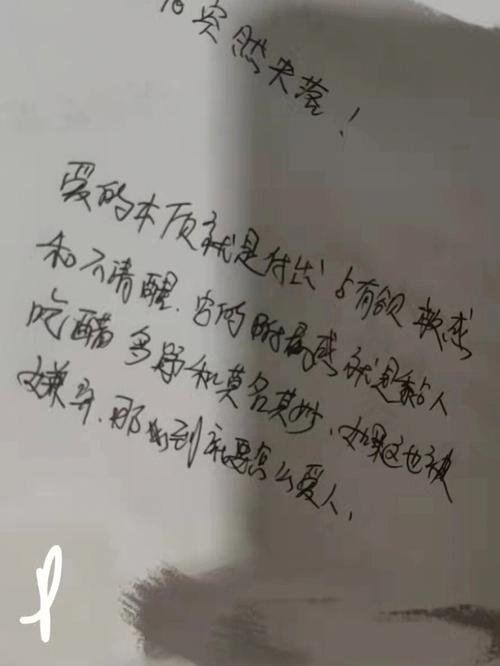 突然失落！
爱的本质就是付出 占有欲 敏感
和不清醒.它的附属感就是黏人
吃醋 多疑和莫名其妙.如果这也被
嫌弃.那我到底要怎么爱人.